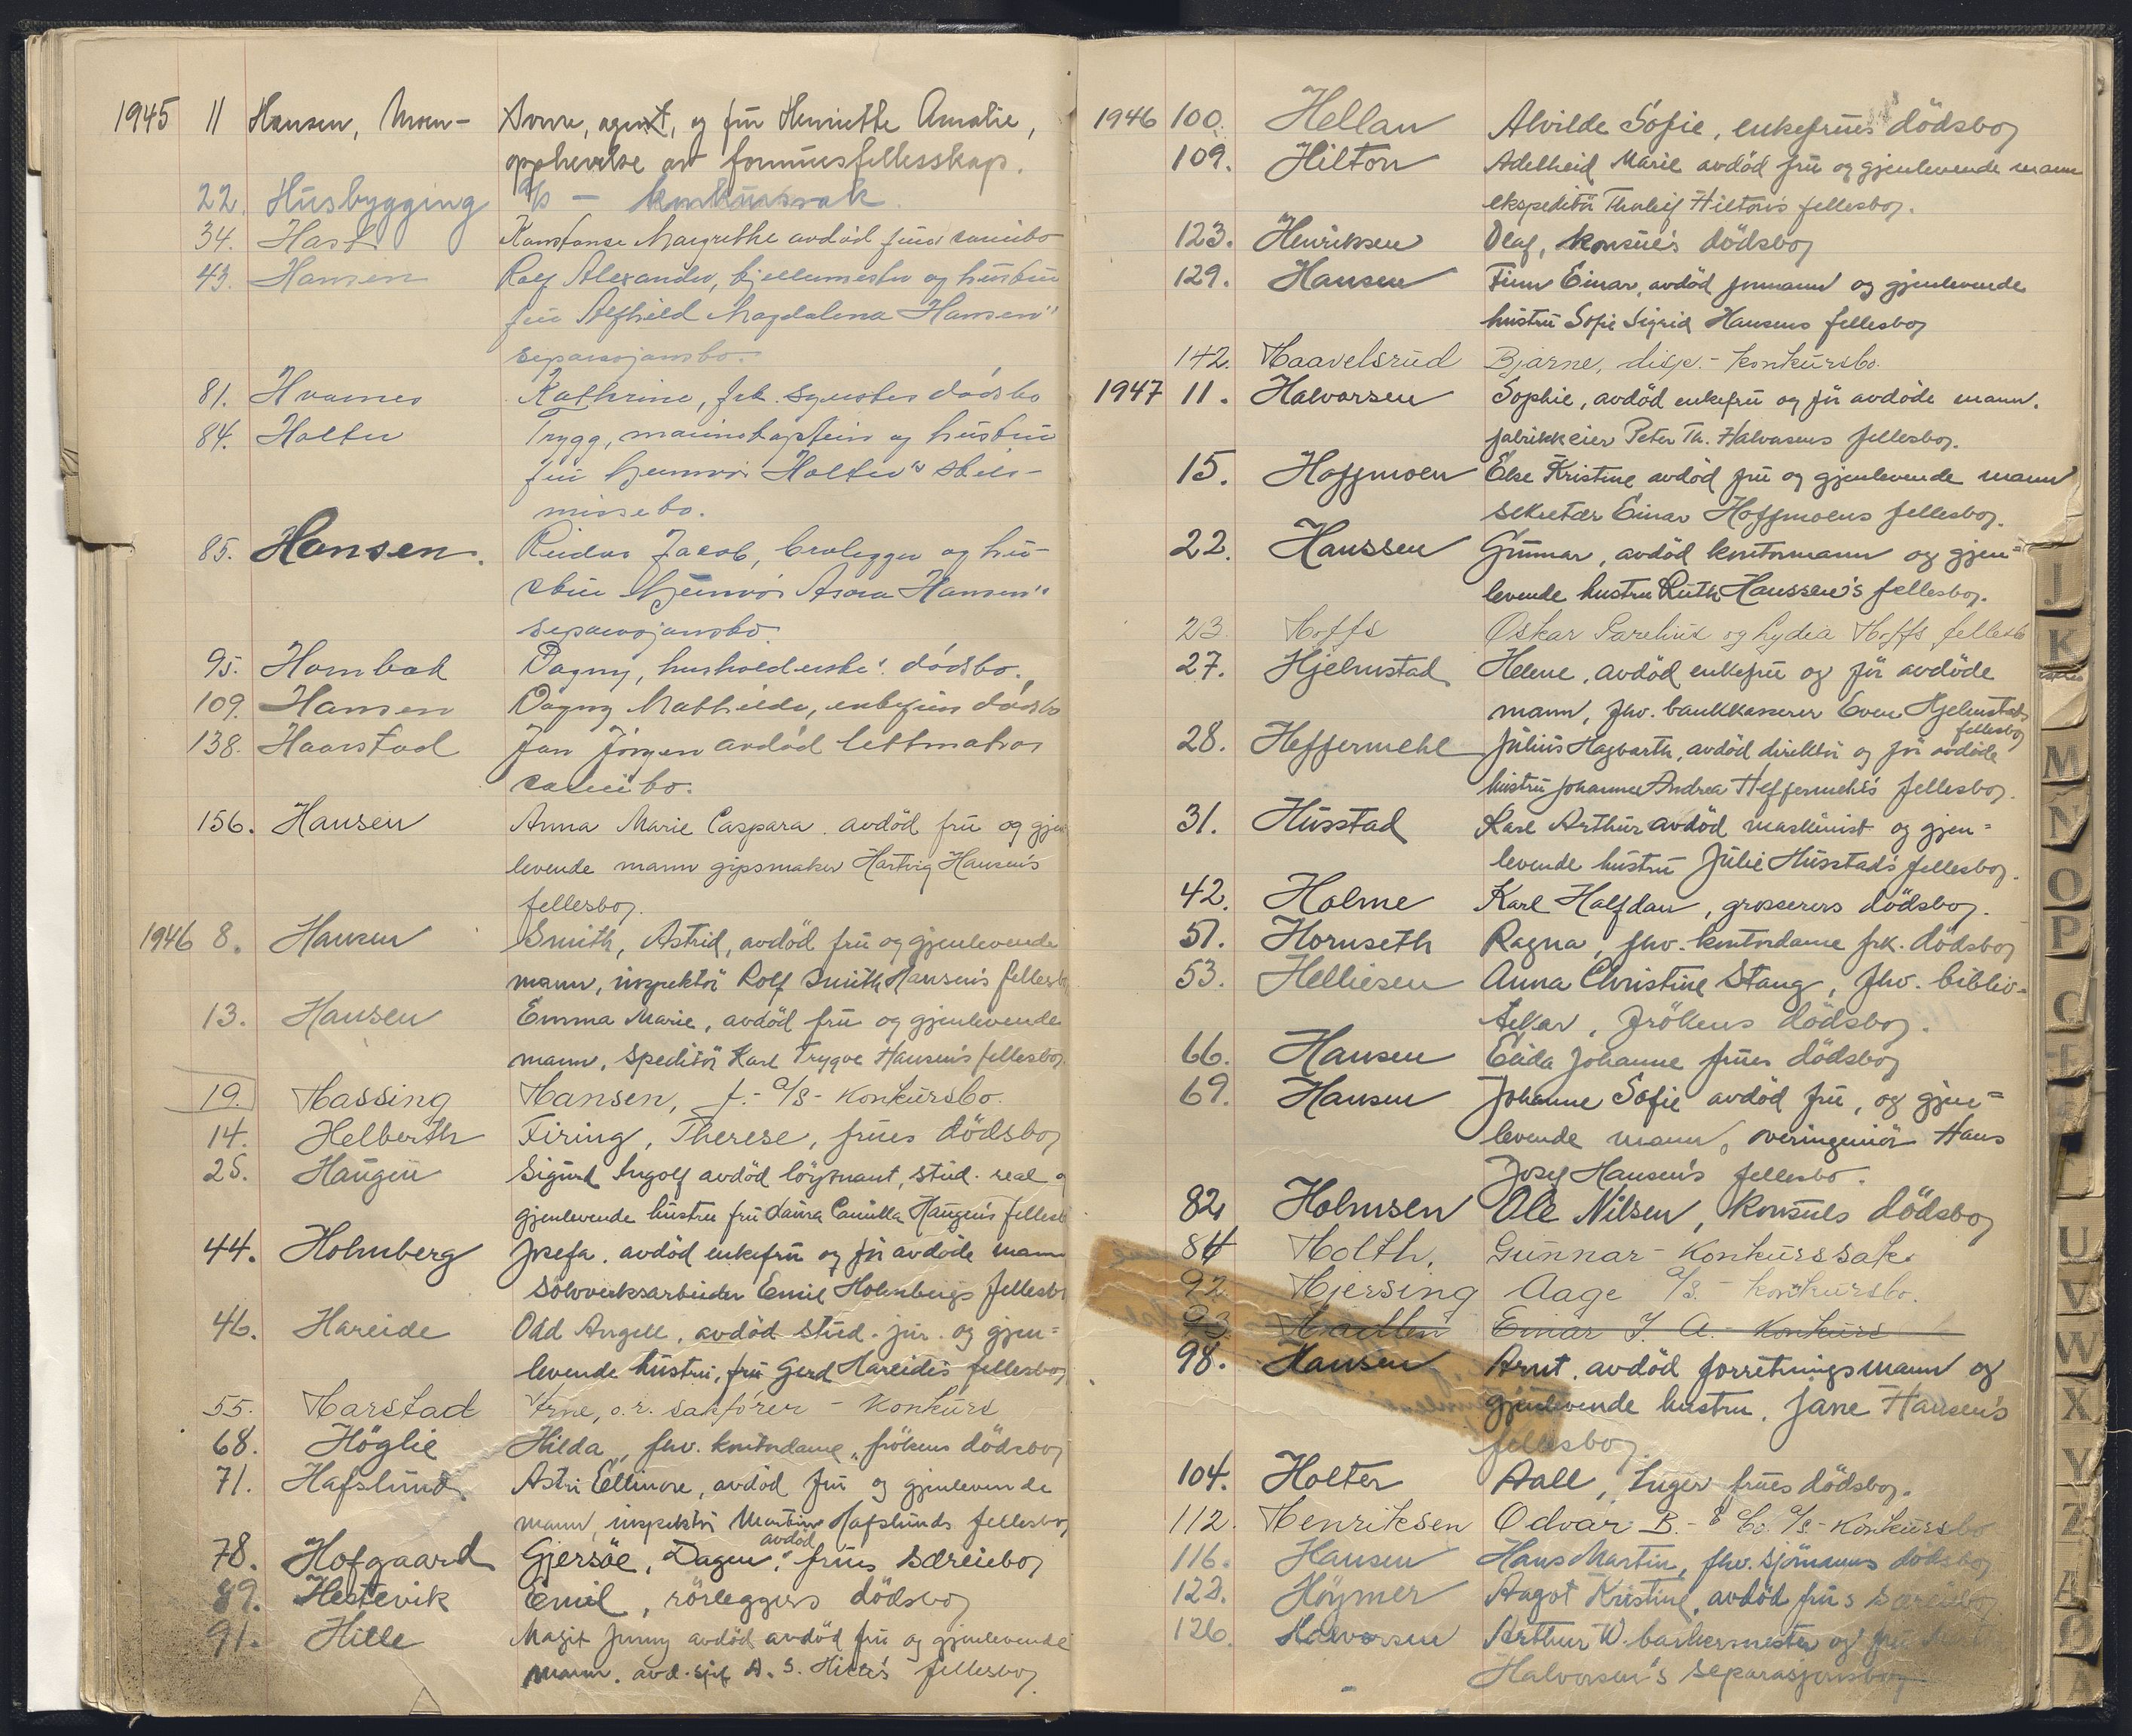 1945 11 Hansen, Moen- Sverre, agent, og fru Henriette Amalie,
opphevelse av formuesfellesskap.
22. Husbygging A/S - konkurssak.
34. Hast Konstanse Margrethe avdød frues særeiebo
43. Hansen Rolf Alexander, kjellermester og hustru
fru Alfhild Magdalena Hansen's
separasjonsbo.
81. Hvames Kathrine, frk. dødsbo
84. Holter Trygg, marinekaptein og hustru
fru Gunvor Holter's skils-
missebo.
85. Hansen. Reidar Jacob, brolegger og hu-
stru Gunvor Asora Hansen's
separasjonsbo.
95. Hornbæk Dagny, husholderske's dødsbo.
109. Hansen Dagny Mathilde, enkefrues dødsbo
138. Haarstad Jan Jörgen avdød lettmatros
særeiebo.
156. Hansen Anna Marie Caspara. avdöd fru og gjen
levende mann gipsmaker Hartvig Hansen's
fellesbo,
1946 8. Hansen Smith, Astrid, avdöd fru og gjenlevende
mann, inspektör Rolf Smith Hansen's fellesbo
13. Hansen Emma Marie, avdöd fru og gjenlevende
mann, speditör Karl Trygve Hansen's fellesbo.
19. Hassing Hansen, f.- A/S - Konkursbo.
14. Helberth Firing, Therese, frues dödsbo,
25. Haugen Sigurd Ingolf avdöd löytnant, stud. real o
gjenlevende hustru fru Laura Camilla Haugen's fellesb
44. Holmberg Josefa. avdöd enkefru og för avdöde mann
sölvverksarbeider Emil Holmbergs fellesbo
46. Hareide Odd Angell, avdöd stud. jur. og gjen=
levende hustru, fru Gerd Hareide's fellesbo,
55. Harstad Arne, o.r. sakförer - Konkurs
68. Höglie Hilda, fhv. kontordame, frökens dödsbo,
71. Hafslund Astri Ellinore, avdöd fru og gjenlevende
mann, inspektör Martin Hafslunds fellesbo,
avdöd
78. Hofgaard Gjersöe, Dagny. frues særeiebo,
89. Hestevik Emil, rörleggers dödsbo,
91. Hille Magit Jenny avdöd avdöd fru og gjenlevende
mann. avd. sjef A. S. Hille's fellesbo,
1946 100. Hellan Alvilde Sofie, enkefrues dödsbo,
109. Hilton Adelheid Marie avdöd fru og gjenlevende mann
ekspeditör Thorleif Hilton's fellesbo,.
123. Henriksen Olaf, konsul's dödsbo,
129. Hansen Finn Einar, avdöd formann og gjenlevende
hustru Sofie Sigrid Hansens fellesbo,
142. Haavelsrud Bjarne, disp.- konkursbo.
1947 11. Halvorsen Sophie, avdöd enkefru og för avdöde mann.
fabrikkeier Peter Th. Halvorsens fellesbo,.
15. Hoffmoen Else Kristine avdöd fru og gjenlevende mann
sekretær Einar Hoffmoens fellesbo,.
22. Hanssen Gunnar, avdöd kontormann og gjen=
levende hustru Ruth Hanssen's fellesbo,.
23. Hoffs Oskar Parelius og Lydia Hoffs fellesb
27. Hjelmstad Helene, avdöd enkefru og för avdöde
mann, fhv. bankkasserer Even Hjelmstads
fellesbo,
28. Heffermehl Julius Hagbarth, avdöd direktör og för avdöde
hustru Johanne Andrea Heffermehl's fellesbo,.
31. Husstad Karl Arthur avdöd maskinist og gjen=
levende hustru Julie Husstad's fellesbo,.
42. Holme Karl Halfdan, grosserers dödsbo,.
51. Hornseth Ragna, fhv. kontordame frk. dödsbo,
53. Helliesen Anna Christine Stang, fhv. biblio=
tekar, frökens dödsbo,.
66. Hansen Elida Johanne frues dödsbo,
69. Hansen Johanne Sofie avdöd fru, og gjen=
levende mann, overingeniör Hans
Josef Hansen's fellesbo.
82. Holmsen Ole Nilsen, konsuls dödsbo,
84 Holth, Gunnar - Konkurssak.
92 Hjersing Aage A/S. - konkursbo.
93. Einar J. A. - Konkurs
98. Hansen Arnt, avdöd forretningsmann og
gjenlevende hustru, Jane Hansen's
fellesbo,.
104. Holter Aall, Inger frues dödsbo,.
112. Henriksen Odvar B. - & Co. A/S - Konkursbo
116. Hansen Hans Martin, fhv. sjömanns dödsbo,
122. Höymer Aagot Kristine, avdöd frues særeiebo,
126. Halvorsen Arthur W. barkermester og fru
Halvorsen's separasjonsbo,
J
K
M
N
O
P
U
V
W
X
Y
Z
Æ
Ø
Å